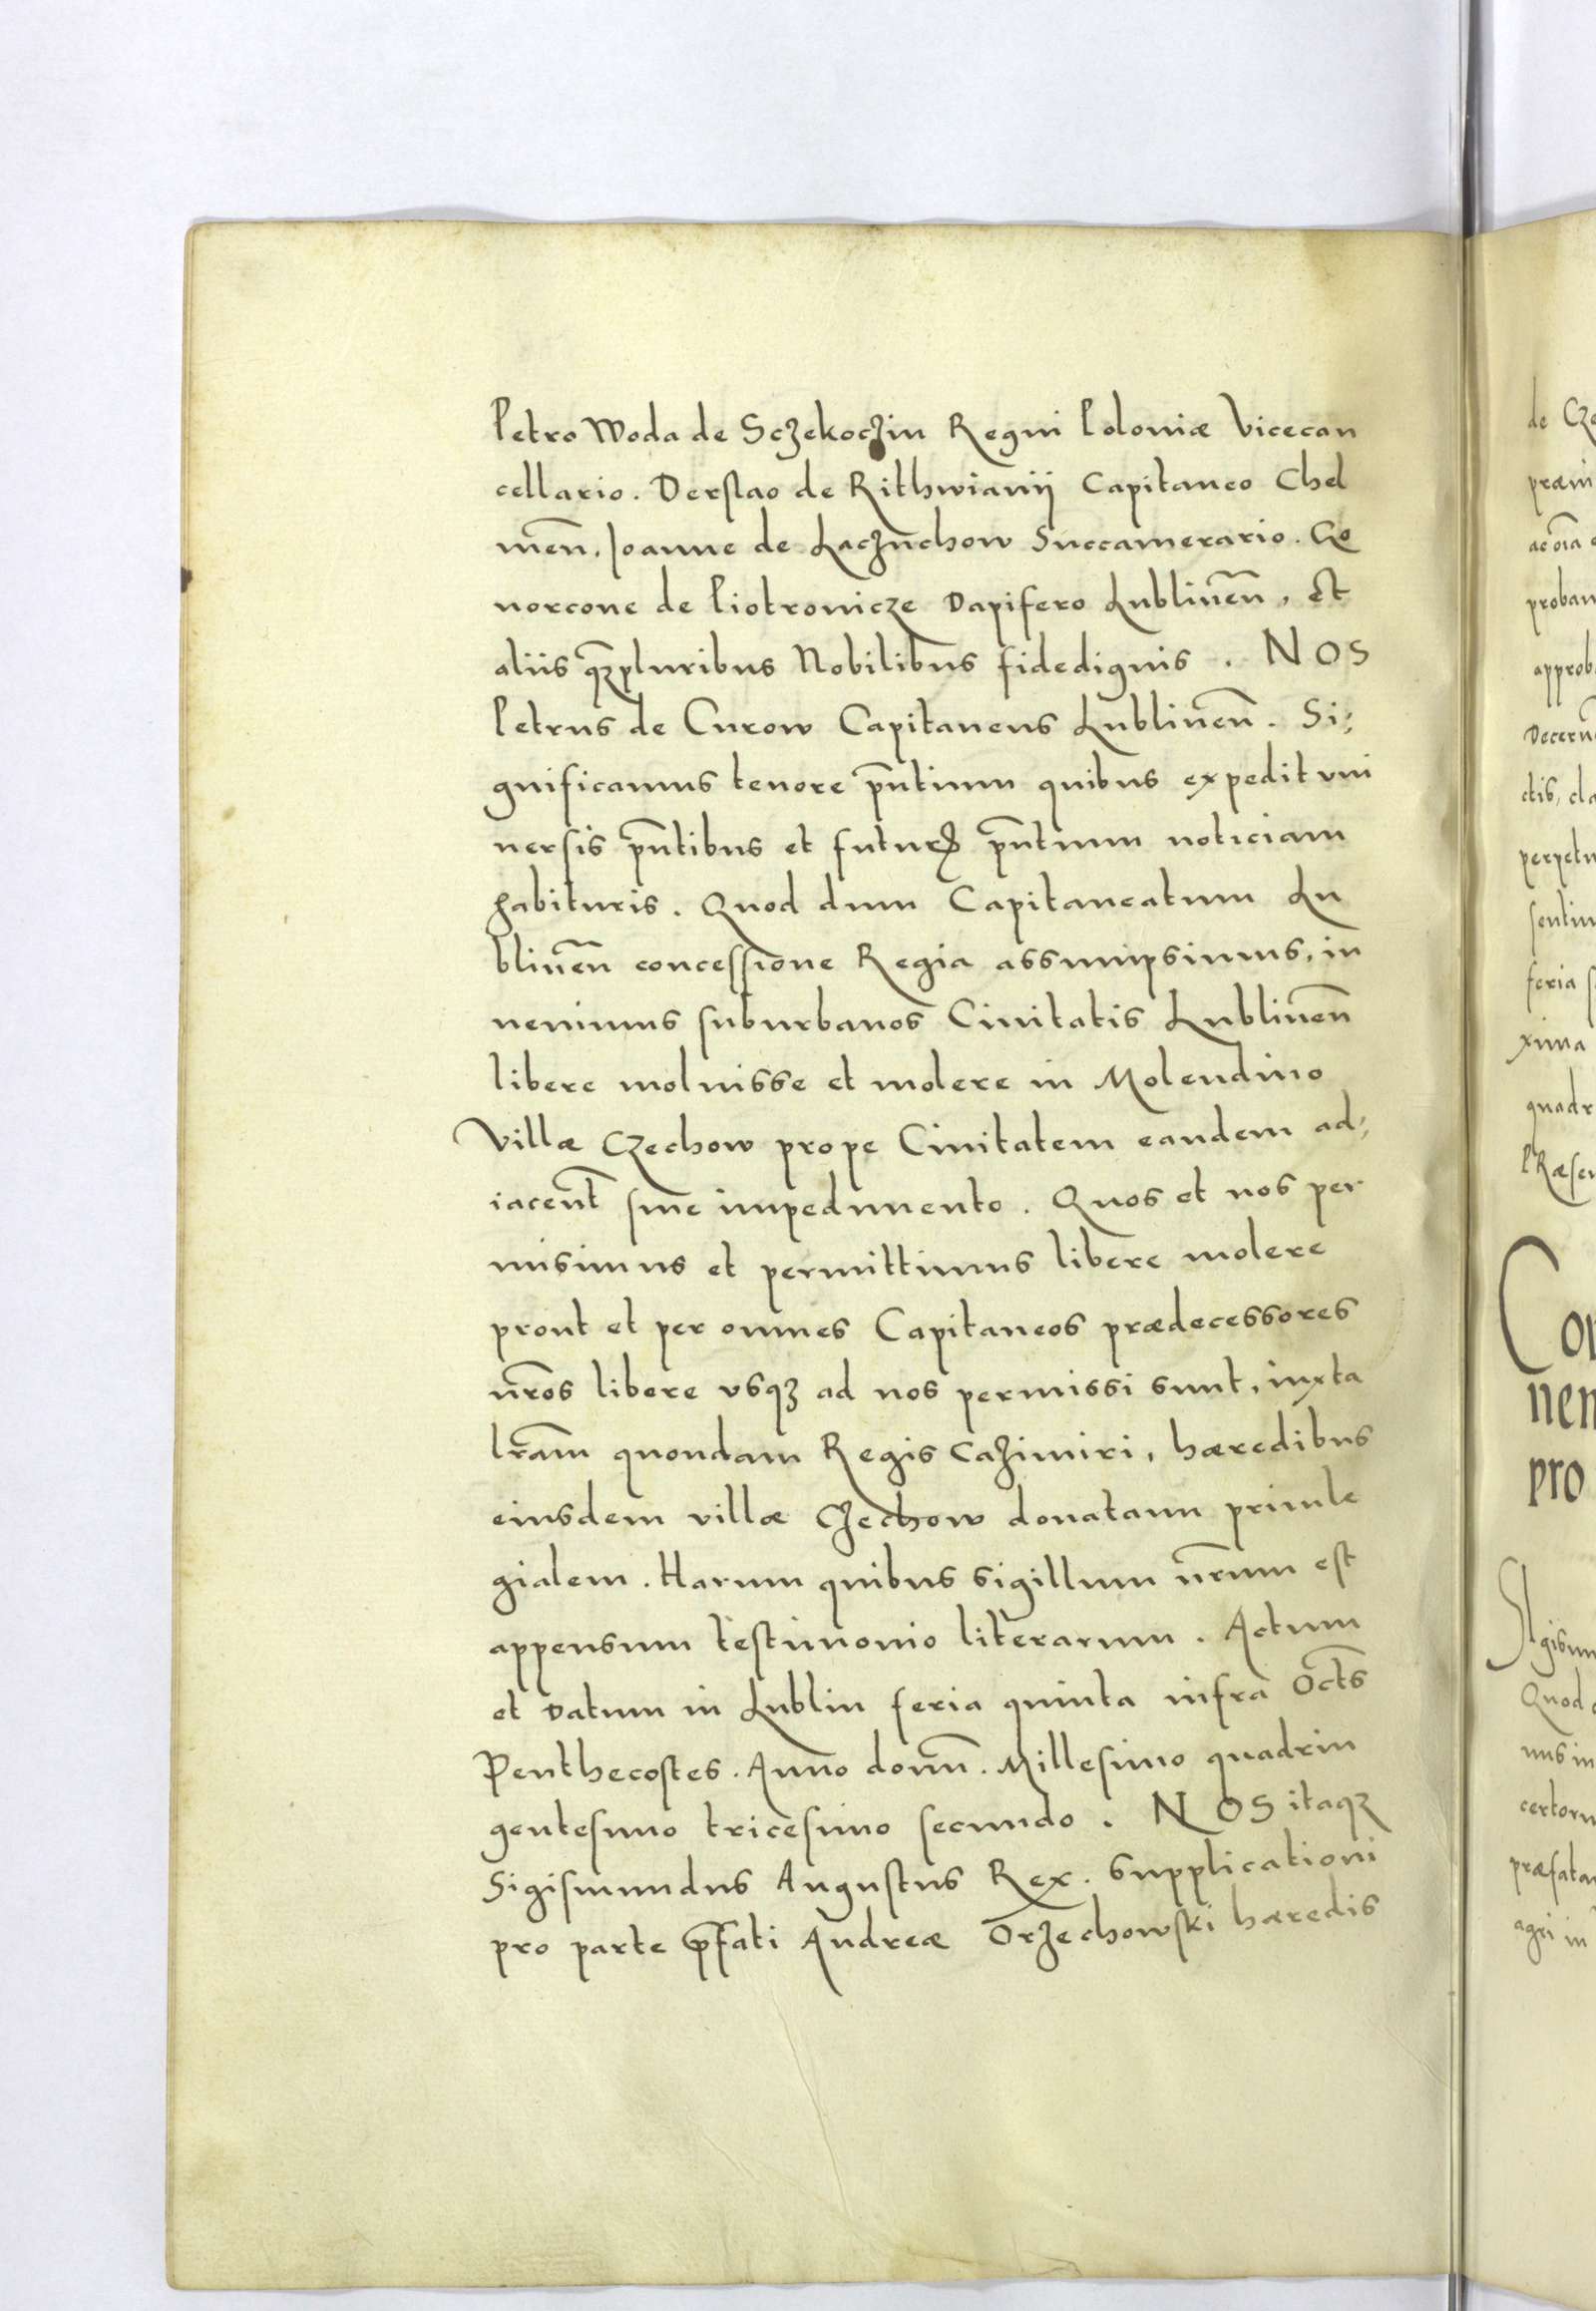 Petro Woda de Sczekoczin Regni Poloniæ Vicecan
cellario. Derslao de Rithwianij Capitaneo Chel
men̄. Joanne de Laczuchow Succamerario. Go
uorcone de Piotrouicze Dapifero Lublineñ, Et
aliis qͣꝫpluribus Nobilibus fidedignis. NOS
Petrus de Curow Capitaneus Lublineñ. Si,
gnificamus tenore pn̄tium quibus expedit vni
uersis pn̄tibus et futurꝭ pn̄tium noticiam
habituris. Quod dum Capitaneatum Lu
blineñ concessione Regia assumpsimus, in
uenimus suburbanos Ciuitatis Lublineñ
libere moluisse et molere in Molendino
Villæ Czechow prope Ciuitatem eandem ad,
iacent̄ sine impedimento. Quos et nos per
misimus et permittimus libere molere
prout et per omnes Capitaneos prædecessores
nr̄os libere vsqꝫ ad nos permissi sunt, iuxta
lr̄am quondam Regis Cazimiri, hæredibus
eiusdem villæ Czechow donatam priuile
gialem. Harum quibus sigillum nr̄um est
appensum testimonio literarum. Actum
et Datum in Lublin feria quinta infra Oct̄s
Penthecostes. Anno domn̄. Millesimo quadrin
gentesimo tricesimo secundo. NOS itaqꝫ
Sigismundus Augustus Rex. Supplicationi
pro parte p̄fati Andreæ Orzechowski hæredis
de Cze
præin
ac oīa
proban
approb
Decern
ctis, cla
perpetu
sentiu
feria
xima
quadr
PRæsen
Con
nem
pro
SIgism
Quod
nus in
certoru
præfata
agri in